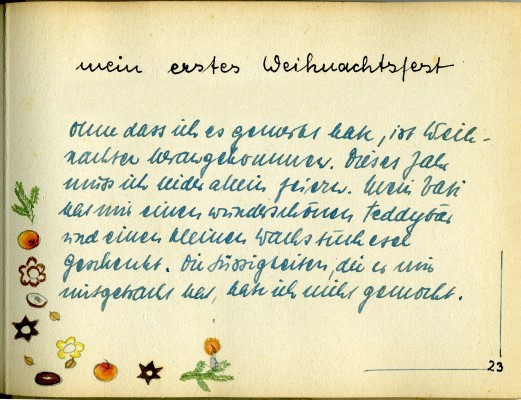 mein erstes Weihnachtsfest
Ohne dass ich es gemerkt habe, ist Weih-
nachten herangekommen. Dieses Jahr
muss ich leider allein feiern. Mein Vati
hat mir einen wunderschönen Teddybär
und einen kleinen Wachstuchesel
geschenkt. Die Süssigkeiten, die er mir
mitgebracht hat, habe ich nicht gemocht.
23